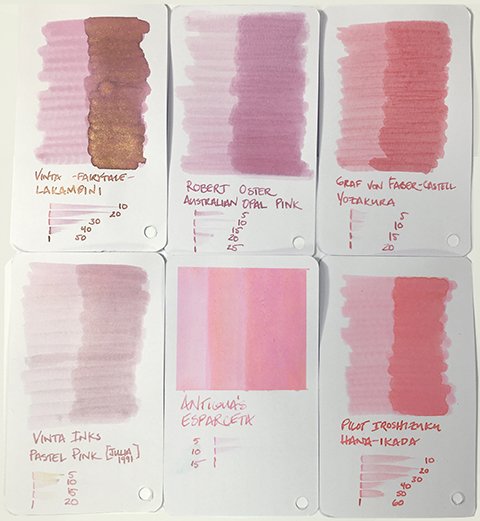 VINTA -FAIRYTALE-
LAKAMBINI
10
20
30
40
50
ROBERT OSTER
AUSTRALIAN OPAL PINK
5
10
15
20
25
GRAF VON FABER-CASTELL
YOZAKURA
5
10
15
20
VINTA INKS
PASTEL PINK [JULIA
1991]
5
10
15
20
ESPARCETA
5
10
15
PILOT IROSHIZUKU
HANA-IKADA
10
20
30
40
50
60